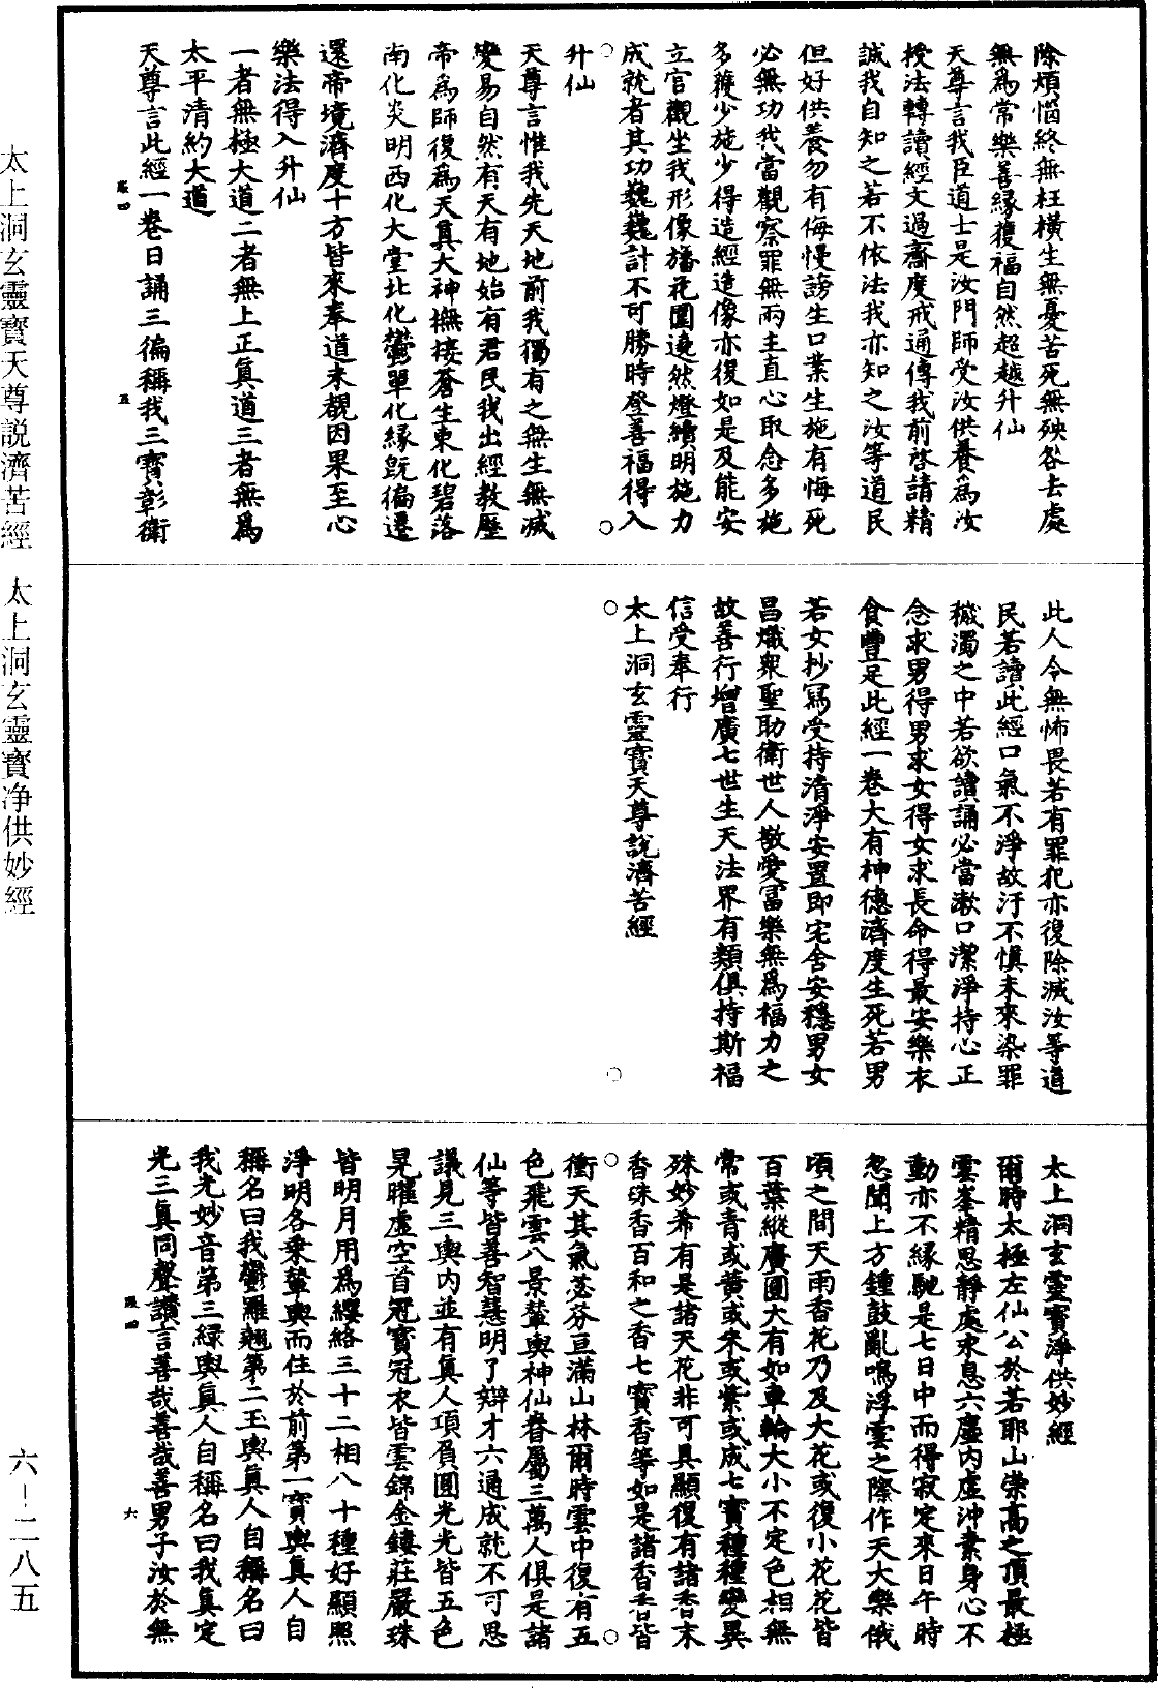 除煩惱終無枉橫生無憂苦死無殃咎去處
無為常樂善緣復福自然超越升仙
天尊言我臣道士是汝門師受汝供養為汝
授法轉讀經文過齋度戒通傳我前啓請精
誠我自知之若不依法我亦知之汝等道民
但好供養勿有侮慢謗生口業生施有悔死
必無功我當觀察罪無兩主直心取念多施
多獲少施少得造經造像亦復如是及能安
立官觀坐我形像旛花圍遶然燈續明施力
成就者其功巍巍計不可勝時登善福得入
升仙
天尊言惟我先天地前我獨有之無生無滅
變易自然有天有地始有君民我出經教歷
帝為師復為天真大神撫接蒼生東化碧落
南化炎明西化大堂北化鬱單化緣既徧還
還帝境濟度十方皆來奉道未覩因果至心
樂法得入升仙
一者無極大道二者無上正真道三者無為
太平清約大道
天尊言此經一卷日誦三徧稱我三寶彰衛
此人令無怖畏若有罪犯亦復除滅汝等道
民若讀此經口氣不淨故汙不慎未來染罪
穢濁之中若欲讀誦必當漱口潔淨持心正
念求男得男求女得女求長命得最安樂衣
食豐足此經一卷大有神德濟度生死若男
若女抄寫受持清淨安置即宅舍安穩男女
昌熾衆聖助衛世人敬愛富樂無為福力之
故善行增廣七世生天法界有類俱持斯福
信受奉行
太上洞玄靈寶天尊說濟苦經
太上洞玄靈寶淨供妙經
爾時太極左仙公於若耶山崇高之頂最極
雲峯精思靜處求息六塵內虛沖素身心不
動亦不緣馳是七日中而得寂定來日午時
忽聞上方鍾鼓亂鳴浮雲之際作天大樂俄
頃之間天雨香花乃及大花或復小花花皆
百葉縱廣圓大有如車輪大小不定色相無
常或青或黄或朱或紫或成七寶種種變異
殊妙希有是諸天花非可具顯復有諸香末
香珠香百和之香七寶香等如是諸香香皆
衝天其氣苾芬亘滿山林爾時雲中復有五
色飛雲八景輦輿神仙眷屬三萬人俱是諸
仙等皆善智慧明了辯才六通成就不可思
議見三輿內並有真人項負圓光光皆五色
晃曜虛空首冠寶冠衣皆雲錦金鏤莊嚴珠
皆明月用為纓絡三十二相八十種好顯照
淨明各乘輦輿而住於前第一寶輿真人自
稱名曰我鬱羅翹第二玉輿真人自稱名曰
我光妙音第三綠輿真人自稱名曰我真定
光三真同聲讚言善哉善哉善男子汝於無
太上洞玄靈寶天尊説濟苦經 太上洞玄靈寶净供妙經
六-二八五